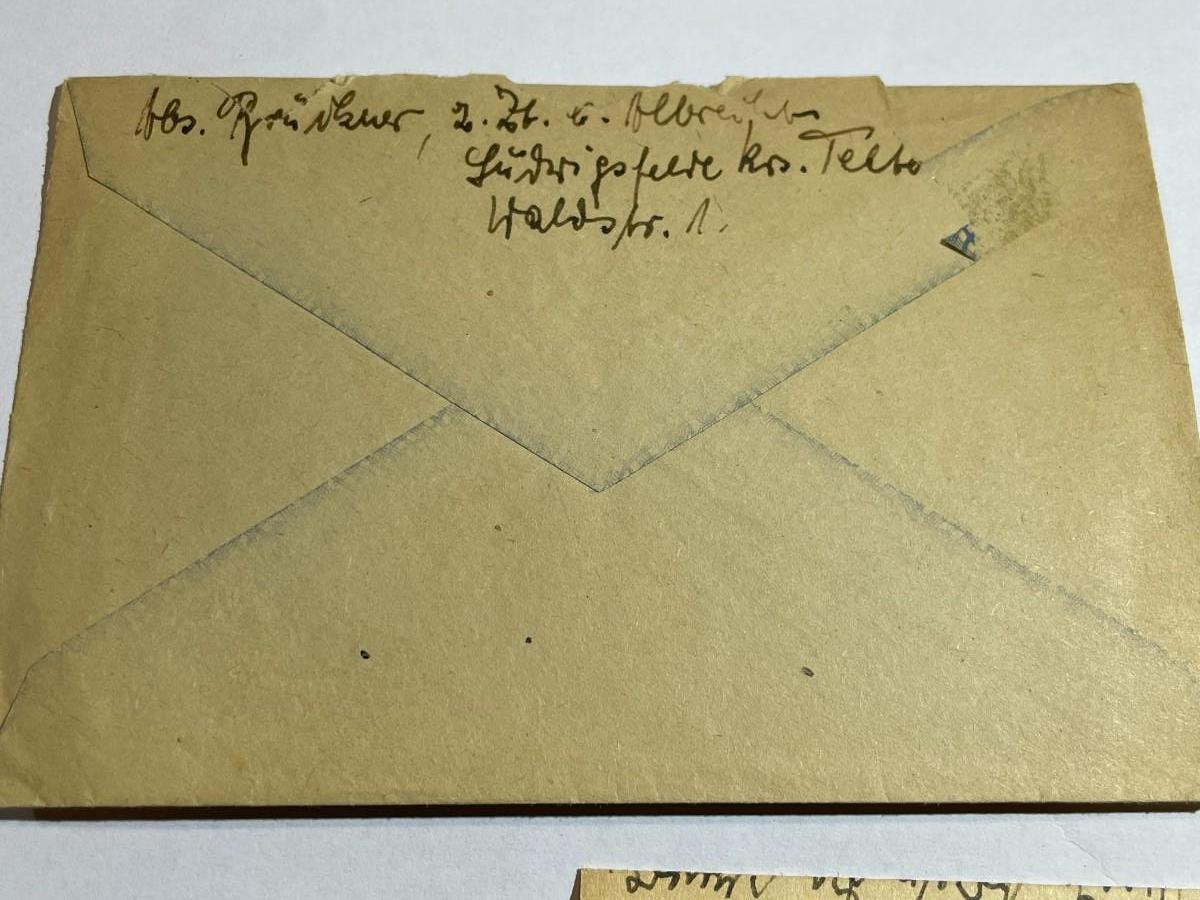 Abs. Brückner, z. Zt. b. Albrecht
Ludwigsfelde Krs. Telto
Waldstr. 1.